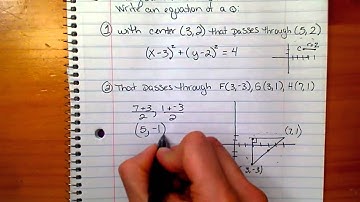 Write an equation of a ⊙:
① with center (3,2) that passes through (5,2)
(x-3)² + (y-2)² = 4
② That passes through F(3,-3), G(3,1), H(7,1)
7+3/2, 1+-3/2
(5,-1)
(7,1)
3,-3)